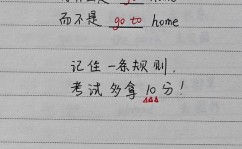 go home
而不是 go to home
记住一条规则,
考试多拿10分!